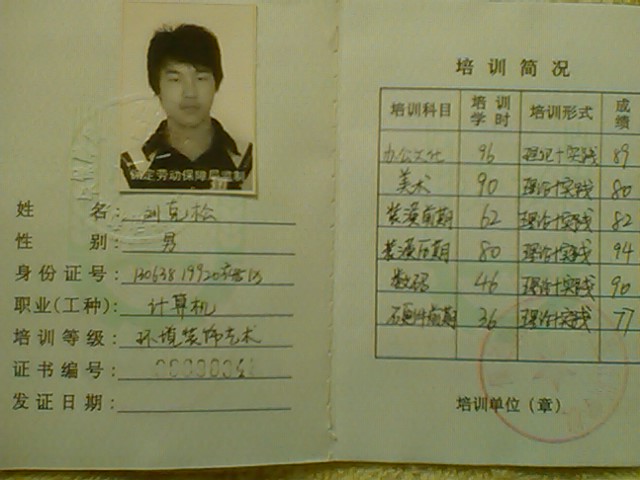 保定劳动保障局监制
姓 名：刘克松
性 别：男
身份证号：
职业(工种)：计算机
培训等级：环境装饰艺术
证书编号：
发证日期：
培训简况
培训科目 培训学时 培训形式 成绩
办公文化 96 理论+实践 89
美术 90 理论+实践 80
装潢前期 62 理论+实践 82
装潢后期 80 理论+实践 94
数码 46 理论+实践 90
36 理论+实践 77
培训单位（章）